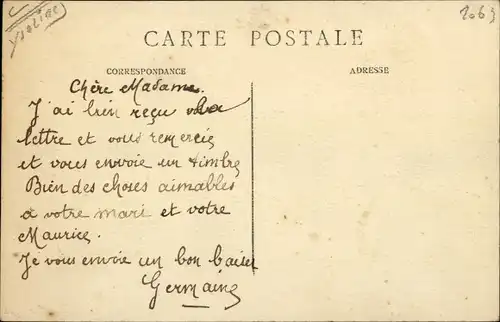 2063
CARTE POSTALE
CORRESPONDANCE
ADRESSE
Chère Madame.
J'ai bien reçu la
lettre et vous remercie
et vous envoie un timbre
Bien des choses aimables
a votre mari et votre
Maurice.
Je vous envoie un bon baiser
Germaine